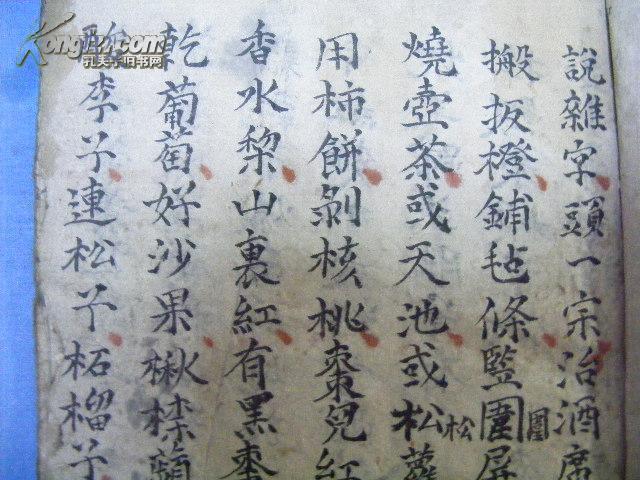 說雜字頭一宗治酒席
搬扳櫈鋪毡條監圍圍屏
燒壺茶或天池或松松蘿
用柿餅剝核桃棗兒紅
香水梨山裏紅有黑棗
乾葡萄好沙果楸檩蘋
酸李子連松子柘榴子
Kongfz.com
孔夫子旧书网